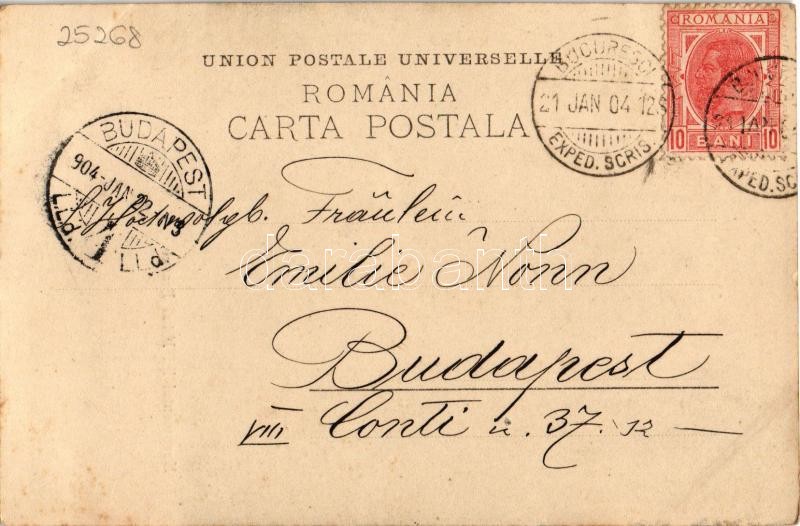 25268
UNION POSTALE UNIVERSELLE
ROMÂNIA
CARTA POSTALA
BUCURESCI
21 JAN 04 12
EXPED. SCRIS.
ROMANIA
10 BANI 10
BUDAPEST
904-JAN
Hochwolgb. Fräulein
Emilie Nonn
Budapest
VIII Conti u. 37. sz
darabanth